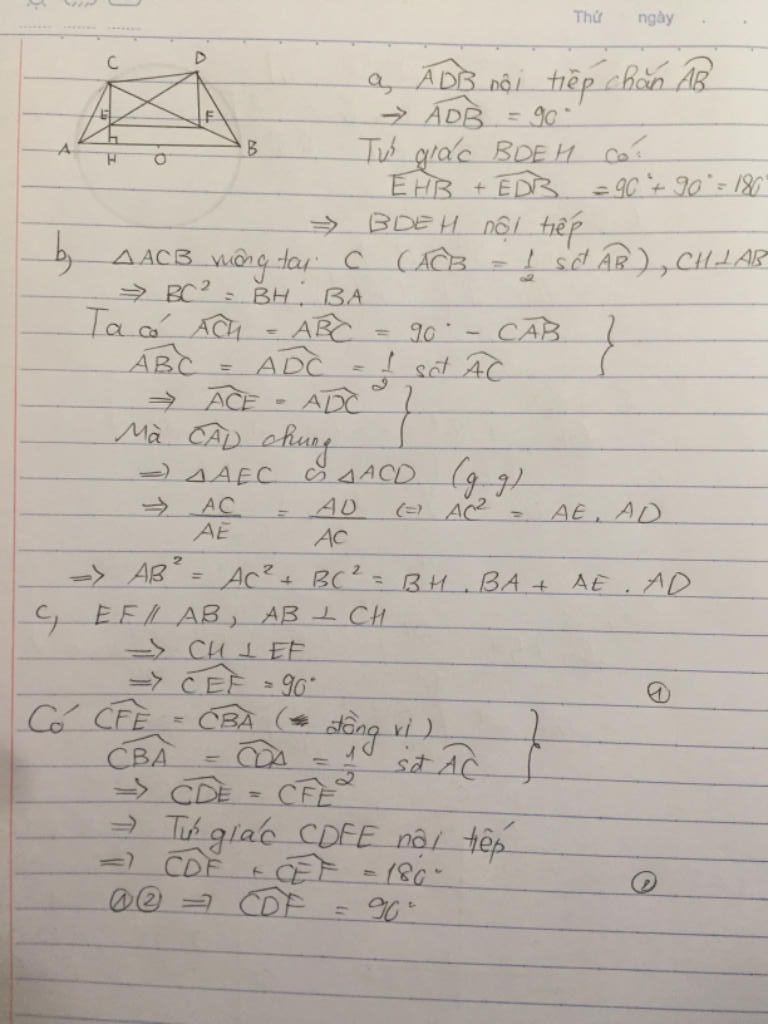 Thứ ngày . .
C D
E F
A H O B
a, ADB nội tiếp chắn AB
→ ADB = 90°
Tứ giác BDEH có:
EHB + EDB = 90° + 90° = 180°
⇒ BDEH nội tiếp
b, △ACB vuông tại C (ACB = 1/2 sđ AB), CH ⊥ AB
⇒ BC² = BH . BA
Ta có ACH = ABC = 90° - CAB }
ABC = ADC = 1/2 sđ AC
⇒ ACE = ADC }
Mà CAD chung
⇒ △AEC ∽ △ACD (g.g)
⇒ AC/AE = AD/AC ⇔ AC² = AE . AD
⇒ AB² = AC² + BC² = BH . BA + AE . AD
c, EF // AB, AB ⊥ CH
⇒ CH ⊥ EF
⇒ CEF = 90° ①
Có CFE = CBA ( đồng vị) }
CBA = CDA = 1/2 sđ AC
⇒ CDE = CFE
⇒ Tứ giác CDFE nội tiếp
⇒ CDF + CEF = 180° ②
①② ⇒ CDF = 90°